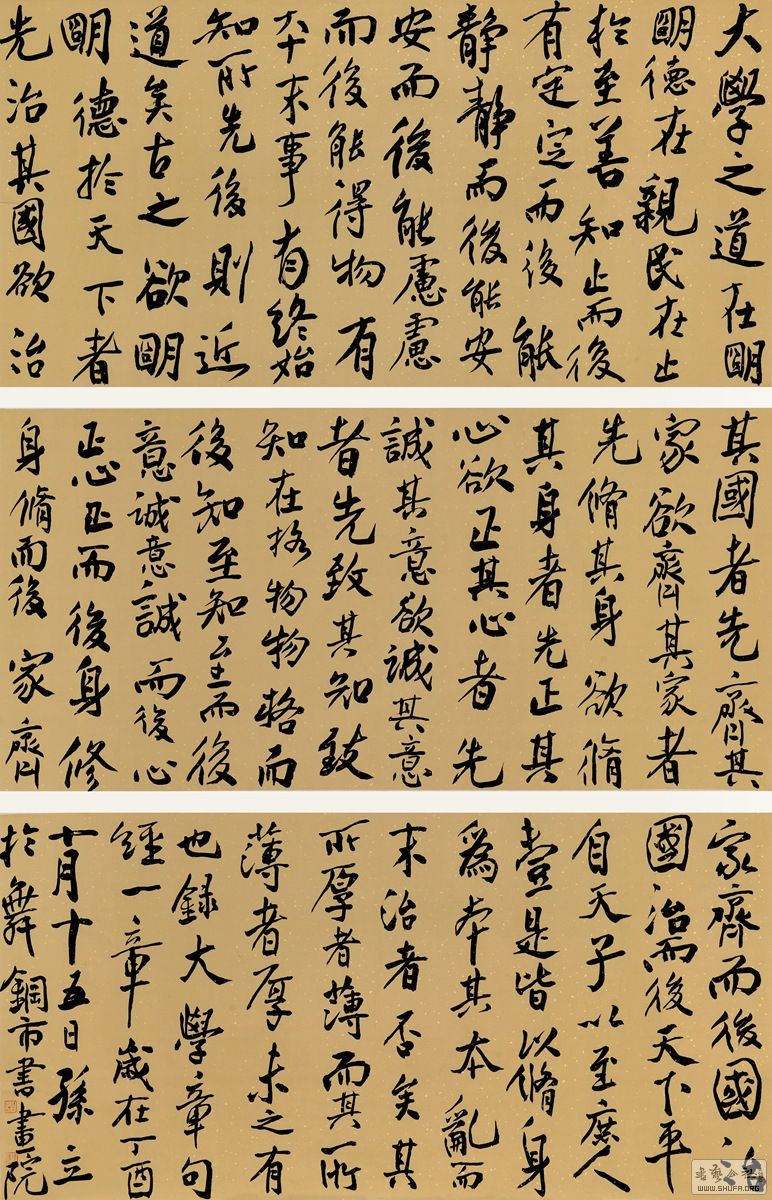 大學之道在朙
朙德在親民在止
於至善知止而後
有定定而後能
靜靜而後能安
安而後能慮慮
而後能得物有
夲末事有終始
知所先後則近
道矣古之欲朙
朙德於天下者
先治其國欲治
其國者先齊其
家欲齊其家者
先脩其身欲脩
其身者先正其
心欲正其心者先
誠其意欲誠其意
者先致其知致
知在格物物格而
後知至知至而後
意誠意誠而後心
正心正而後身修
身脩而後家齊
家齊而後國治
國治而後天下平
自天子以至庶人
壹是皆以脩身
為夲其本亂而
末治者否矣其
所厚者薄而其所
薄者厚未之有
也録大學章句
經一章歲在丁酉
十月十五日孫立
於舞鋼市書畫院
WWW.SHUFA.ORG